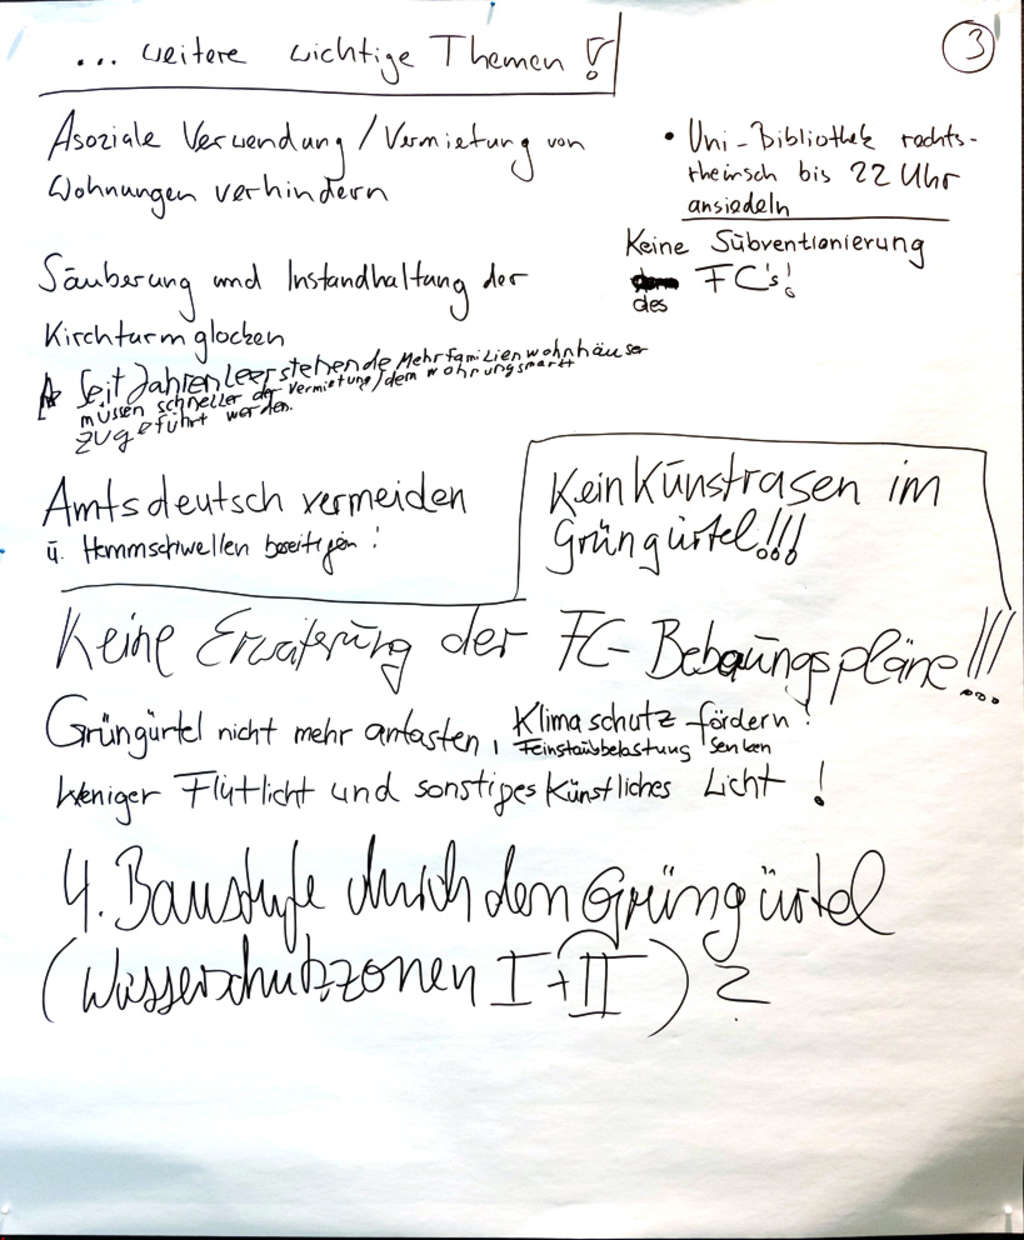 ... weitere wichtige Themen !
3
Asoziale Verwendung / Vermietung von
Wohnungen verhindern
• Uni-Bibliothek rechts-
rheinisch bis 22 Uhr
ansiedeln
Keine Subventionierung
des FC's!
Säuberung und Instandhaltung der
Kirchturmglocken
Seit Jahren leerstehende Mehrfamilienwohnhäuser
müssen schneller der Vermietung/dem Wohnungsmarkt
zugeführt werden.
Amtsdeutsch vermeiden
u. Hemmschwellen beseitigen!
Kein Kunstrasen im
Grüngürtel!!!
Keine Erweiterung der FC-Bebauungspläne!!!
Grüngürtel nicht mehr antasten, Klimaschutz fördern!
Feinstaubbelastung senken
Weniger Flutlicht und sonstiges künstliches Licht !
4. Baustufe durch den Grüngürtel
(Wasserschutzzonen I + II) ?